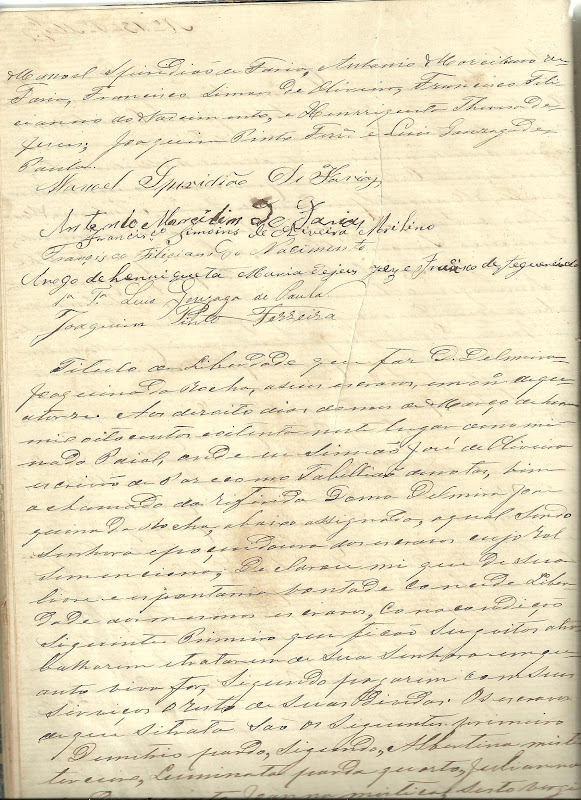 Manoel Spiridião de Faria, Antonio Marcelino de
Faria, Francisco Simoens de Oliveira, Francisco Feli
ciano do Nascimento, e Henrriqueta Maria de
Jesus; Joaquim Pinto Ferrª e Luis Gonzaga de
Paula.
Manoel Spiridião de Faria
Antonio Marcilino d Faria
Francisco Simoins de Oliveira
Francisco Feliciano do Nacimento
Arogo de henriqueta Maria de jesus
Luis Gonzaga de Paula
Joaquim Pinto Ferreira
Titulo de Liberdade que faz D. Delmira
Joaquina da Rocha, a seus escravos, em nº de qua
torze. Aos dezoito dias do mes de Março de hum
mil oitocentos e oitenta neste lugar denomi
nado Paiol, onde eu Simião José de Oliveira
escrivão de Paz e como Tabellião de notas, vim
a chamado da referida Dona Delmira Joa
quina da Rocha, abaixo assignada, a qual sendo
Senhora e possuidora dos escravos cujo Rol
de sua
livre e espontania vontade concede Liber
dade aos mesmos escravos, com a condição
Seguinte Primeiro que ficão Sugeitos a tra
balharem e tratarem de sua Senhora em qu
anto viva for, Segundo pagarem com seus
serviços o resto de suas Dividas. Os escravos
de que se trata são os Seguintes primeiro
Demetrio pardo, Segundo, Albertina
terceiro, Luminata parda quarto, Julianna
Joanna mistiça, Sesto